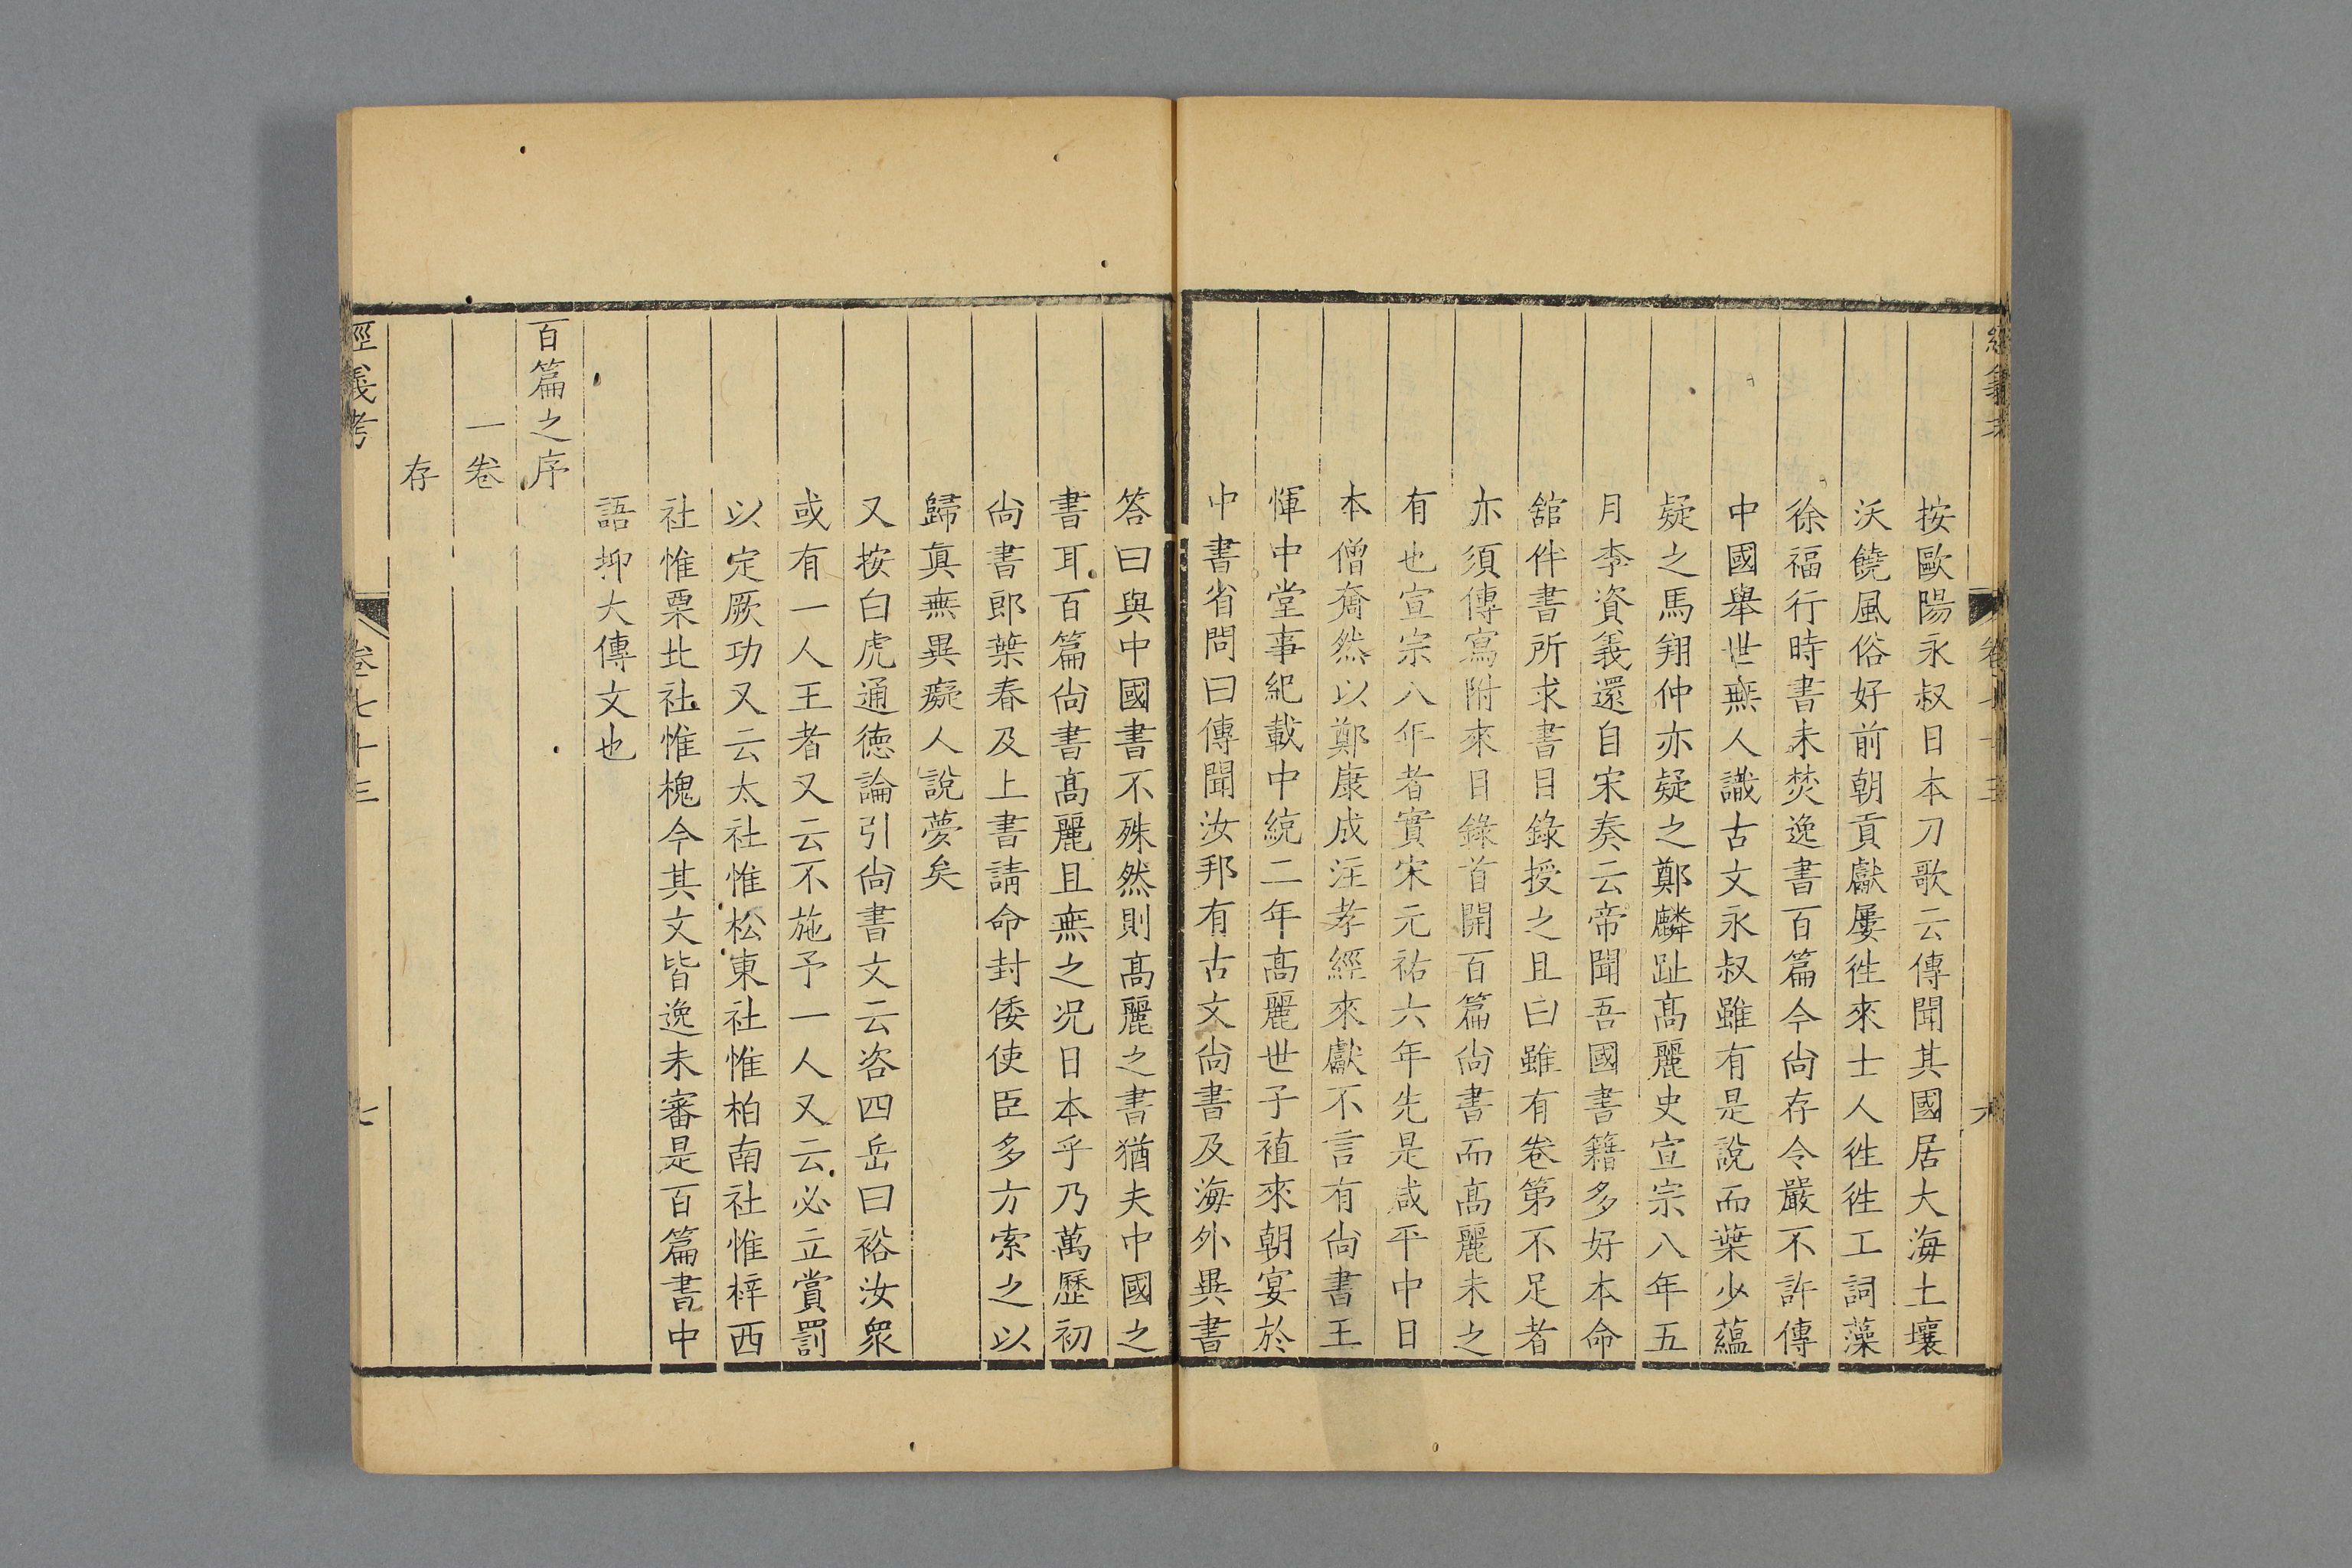 按歐陽永叔日本刀歌云傳聞其國居大海土壤
沃饒風俗好前朝貢獻屢徃來士人徃徃工詞藻
徐福行時書未焚逸書百篇今尚存令嚴不許傳
中國舉世無人識古文永叔雖有是說而葉少蘊
疑之馬翔仲亦疑之鄭麟趾髙麗史宣宗八年五
月李資義還自宋奏云帝聞吾國書籍多好本命
舘伴書所求書目錄授之且曰雖有卷第不足者
亦須傳寫附來目錄首開百篇尚書而髙麗未之
有也宣宗八年者實宋元祐六年先是咸平中日
本僧奝然以鄭康成注孝經來獻不言有尚書王
惲中堂事紀載中統二年髙麗世子禃來朝宴於
中書省問曰傳聞汝邦有古文尚書及海外異書
答曰與中國書不殊然則髙麗之書猶夫中國之
書耳百篇尚書髙麗且無之况日本乎乃萬歷初
尚書郎葉春及上書請命封倭使臣多方索之以
歸真無異癡人說夢矣
又按白虎通德論引尚書文云咨四岳曰裕汝衆
或有一人王者又云不施予一人又云必立賞罰
以定厥功又云太社惟松東社惟柏南社惟梓西
社惟栗北社惟槐今其文皆逸未審是百篇書中
語抑大傳文也
百篇之序
一卷
存
經義考
卷七十三
七